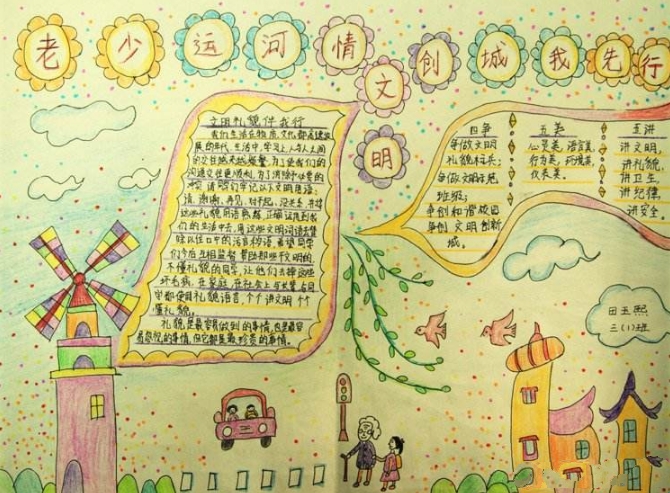 老少运河情 文明创城我先行
文明礼貌伴我行
我们生活在物质,文化都高速发
展的年代,生活中,学习上,人与人之间
的交往越来越频繁,为了使我们的
沟通交往更顺利,为了消除不必要的
请,谢谢,再见,对不起,没关系,并将
这些礼貌用语熟练,正确运用到我
们的生活中去,用这些文明词语去替
除以往口中的污言秽语,希望同学
们今后互相监督,帮助那些不文明的,
不懂礼貌的同学,让他们去掉这些
坏毛病,在家庭,在社会上与长辈
都使用礼貌语言,个个讲文明,个个
懂礼貌。
礼貌是最容易做到的事情,也是最容
易忽视的事情,但它却是最珍贵的事情。
四争
争做文明
礼貌标兵;
争做文明示范
班级;
争创和谐校园
争创文明创新
城。
五美
心灵美,语言美,
行为美,环境美,
仪表美。
五讲
讲文明,
讲礼貌,
讲卫生,
讲纪律,
讲安全
田玉熙
三(1)班